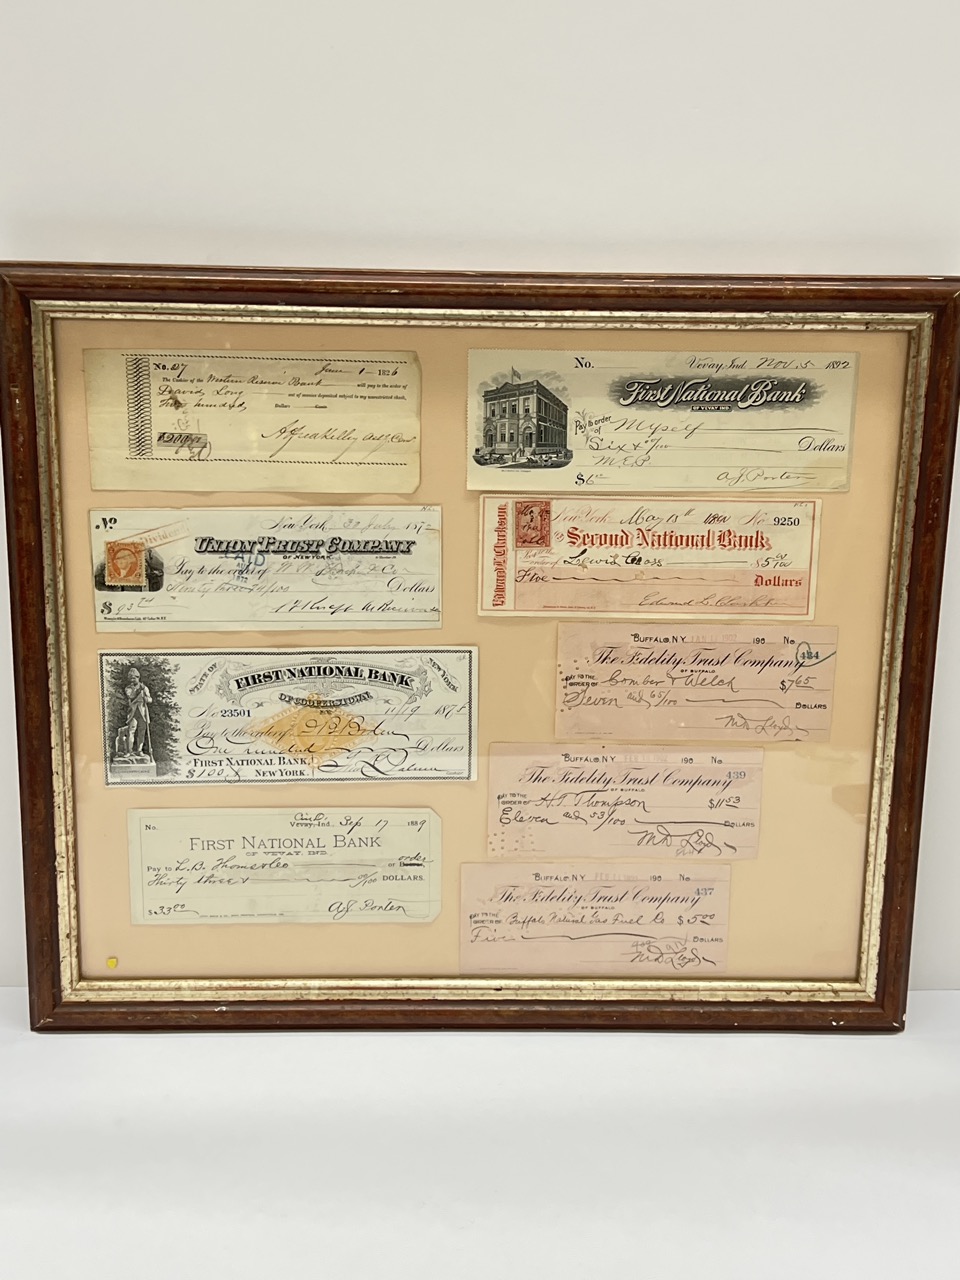 No. 27 June 1 - 1826
The Cashier of the Western Reserve Bank will pay to the order of
David Long out of monies deposited subject to my uncontrolled check,
Five hundred
Dollars Cents
No. Vevay, Ind. Nov. 5 1892
First National Bank
OF VEVAY IND.
Pay to order of Myself
Six & 00/100 Dollars
M.E.P.
$6 00 A.J. Porter
No New York 187
UNION TRUST COMPANY
OF NEW YORK
Pay to the order of
Dollars
$ 93 24
New York May 15th No. 9250
Second National Bank
Edward L. Clarkson
order of Lewis Cross $5 00/100
Five Dollars
Edward L. Clarkson
STATE OF NEW YORK
FIRST NATIONAL BANK
OF COOPERSTOWN
No 23501 11/19 187
Pay to the order of
One hundred Dollars
FIRST NATIONAL BANK,
NEW YORK.
$100
BUFFALO, NY 190 No. 424
The Fidelity Trust Company
OF BUFFALO
PAY TO THE ORDER OF Comber & Welch $7 65
Seven and 65/100 DOLLARS
M D Lloyd
BUFFALO, NY 190 No.
439
The Fidelity Trust Company
OF BUFFALO
PAY TO THE ORDER OF H.T. Thompson $11 53
Eleven and 53/100 DOLLARS
M D Lloyd
No. Vevay, Ind., Sep 17 1889
FIRST NATIONAL BANK
OF VEVAY, IND.
Pay to L.B. Thomas & Co or order
Thirty three & 00/100 DOLLARS.
$33 00 A J Porter
BUFFALO, NY 190 No.
437
The Fidelity Trust Company
OF BUFFALO
PAY TO THE ORDER OF Buffalo Natural Gas Fuel Co $5 00
Five DOLLARS
M D Lloyd